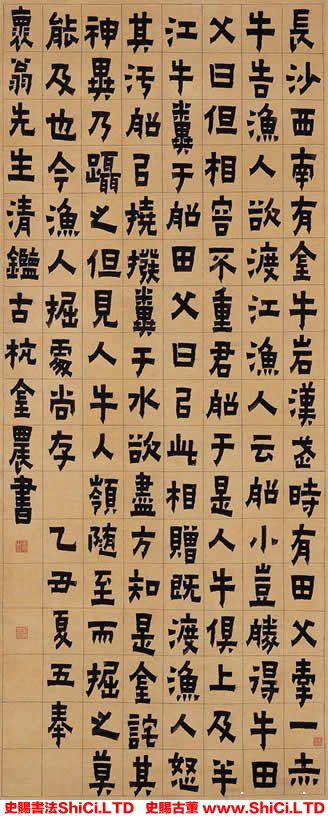 長沙西南有金牛岩漢武時有田父牽一赤
牛告漁人欲渡江漁人云船小豈勝得牛田
父曰但相容不重君船于是人牛俱上及半
江牛糞于船田父曰以此相贈既渡漁人怒
其汚船以撓撥糞于水欲盡方知是金詫其
神異乃躡之但見人牛人嶺随至而掘之莫
能及也今漁人掘處尚存　乙丑夏五奉
裏翁先生清鑑古杭金農書
史賜書法ShiCi.LTD 史賜古董ShiCi.LTD